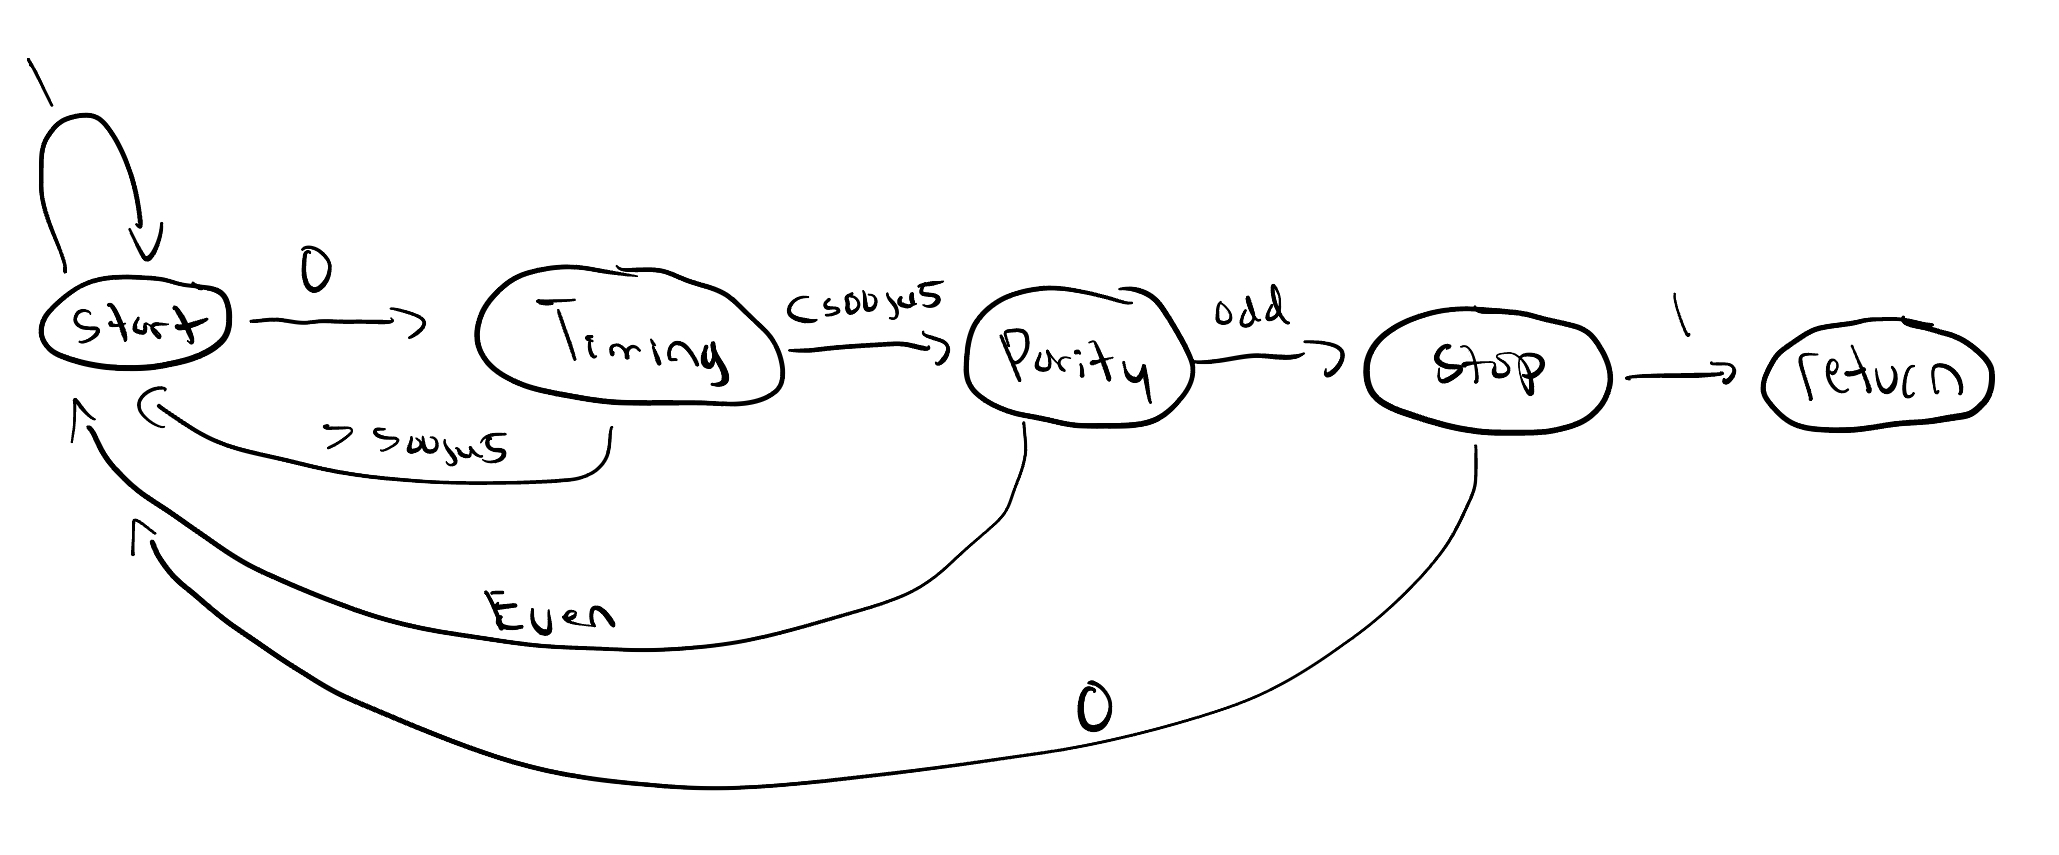 1
0
start
Timing
<500μs
Parity
odd
stop
1
return
>500μs
Even
0